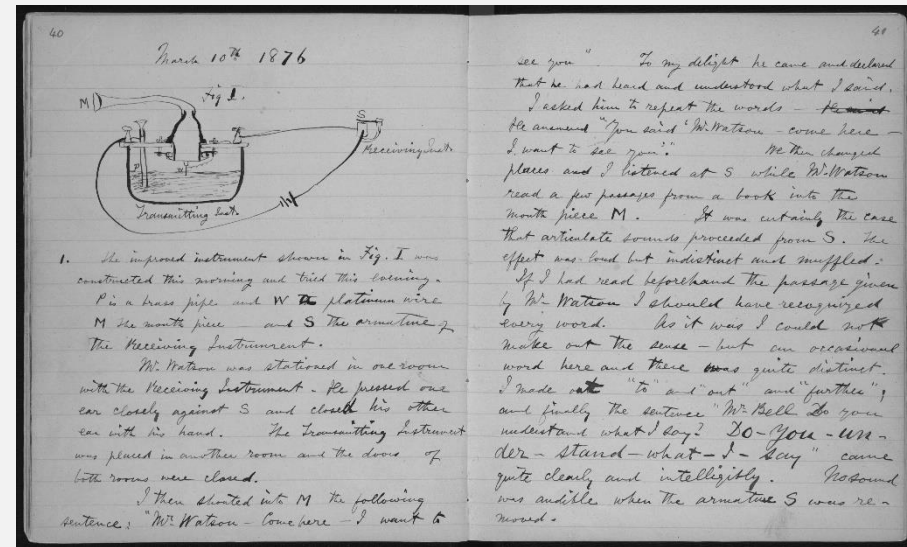 40
March 10th 1876
Fig 1.
M
S
Receiving Inst.
P
W
Transmitting Inst.
1. The improved instrument shown in Fig. I was
constructed this morning and tried this evening.
P is a brass pipe and W the platinum wire
M the mouth piece and S the armature of
the Receiving Instrument.
Mr. Watson was stationed in one room
with the Receiving Instrument. He pressed one
ear closely against S and closed his other
ear with his hand. The Transmitting Instrument
was placed in another room and the doors of
both rooms were closed.
I then shouted into M the following
sentence: "Mr. Watson - Come here - I want to
41
see you". To my delight he came and declared
that he had heard and understood what I said.
I asked him to repeat the words - He said
He answered "You said 'Mr. Watson - come here -
I want to see you'." We then changed
places and I listened at S while Mr. Watson
read a few passages from a book into the
mouth piece M. It was certainly the case
that articulate sounds proceeded from S. The
effect was loud but indistinct and muffled.
If I had read beforehand the passage given
by Mr. Watson I should have recognized
every word. As it was I could not
make out the sense - but an occasional
word here and there was quite distinct.
I made out "to" and "out" and "further";
and finally the sentence "Mr. Bell Do you
understand what I say? Do-you-un-
der-stand-what-I-say" came
quite clearly and intelligibly. No sound
was audible when the armature S was re-
moved.